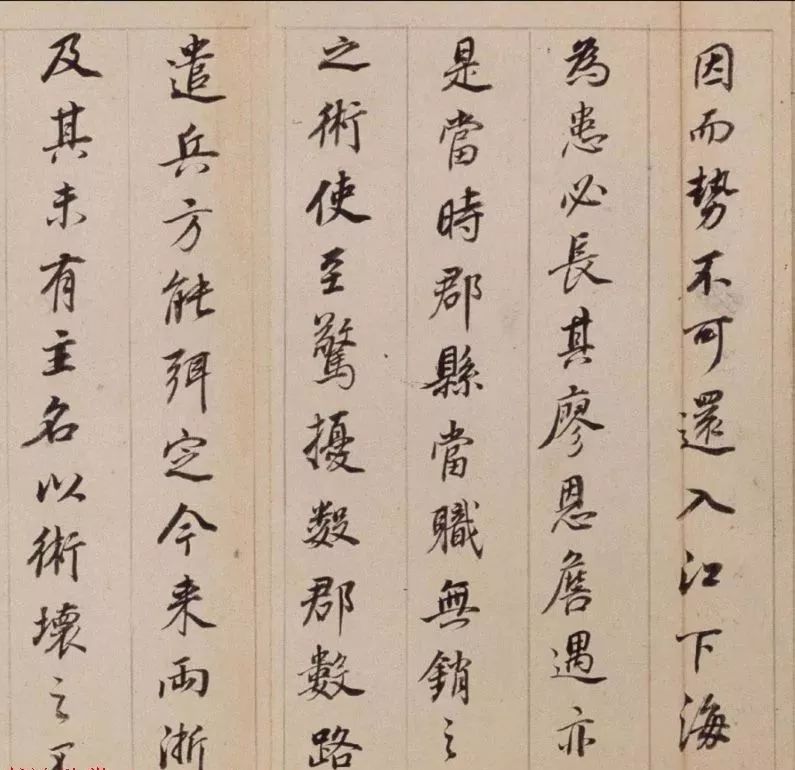 因而勢不可還入江下海
為患必長其廖恩詹遇亦
是當時郡縣當職無銷之
之術使至驚擾數郡數路
遣兵方能弭定今來兩浙
及其未有主名以術壞之